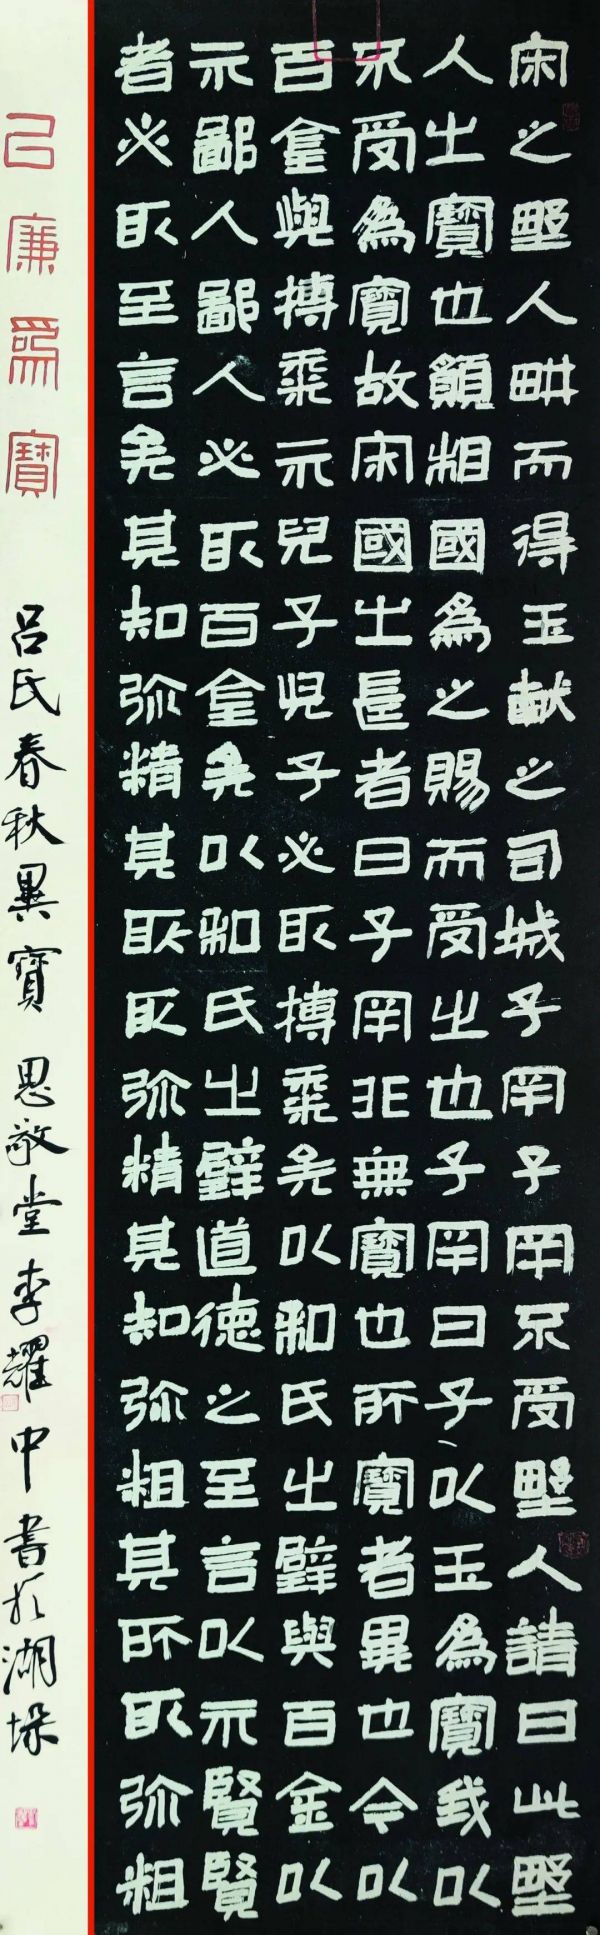 宋之野人畊而得玉獻之司城子罕子罕不受野人請曰此野
人之寶也願相國為之賜而受之也子罕曰子以玉為寶我以
不受為寶故宋國之長者曰子罕非無寶也所寶者異也今以
百金與搏黍示兒子兒子必取搏黍矣以和氏之璧與百金以
示鄙人鄙人必取百金矣以和氏之璧道德之至言以示賢賢
者必取至言矣其知弥精其所取弥精其知弥粗其所取弥粗
以廉為寶
呂氏春秋異寶 思敬堂李耀中書於湖垛